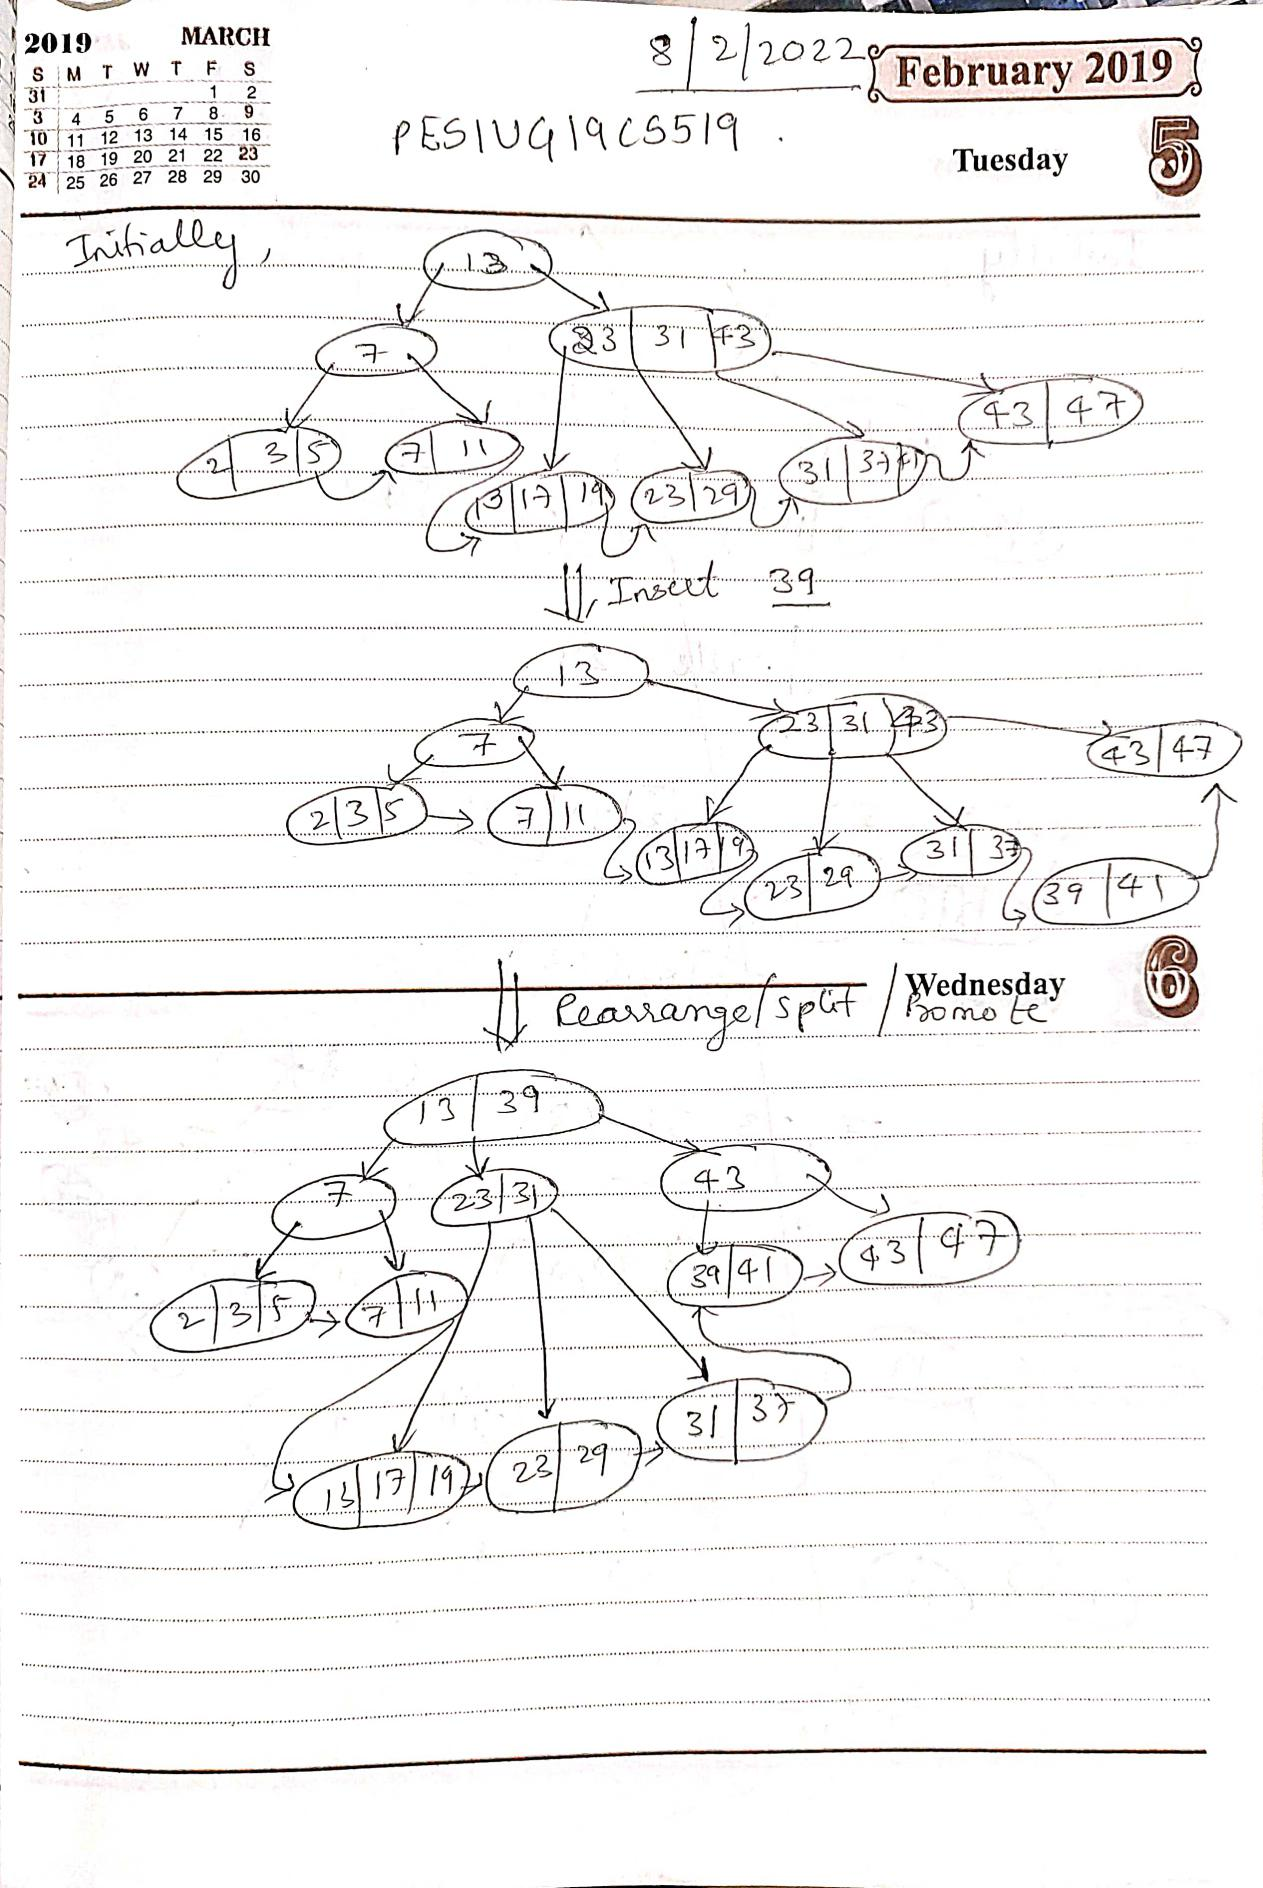 2019 MARCH
S M T W T F S
31 1 2
3 4 5 6 7 8 9
10 11 12 13 14 15 16
17 18 19 20 21 22 23
24 25 26 27 28 29 30
8/2/2022
February 2019
PES1UG19CS519.
Tuesday 5
Initially,
13
7 23 31 43
43 47
2 3 5 7 11 31 37 41
13 17 19 23 29
Insert 39
13
7 23 31 43 43 47
2 3 5 7 11 13 17 19 23 29 31 37 39 41
Wednesday 6
Rearrange/split/Promote
13 39
7 23 31 43
2 3 5 7 11 39 41 43 47
13 17 19 23 29 31 37